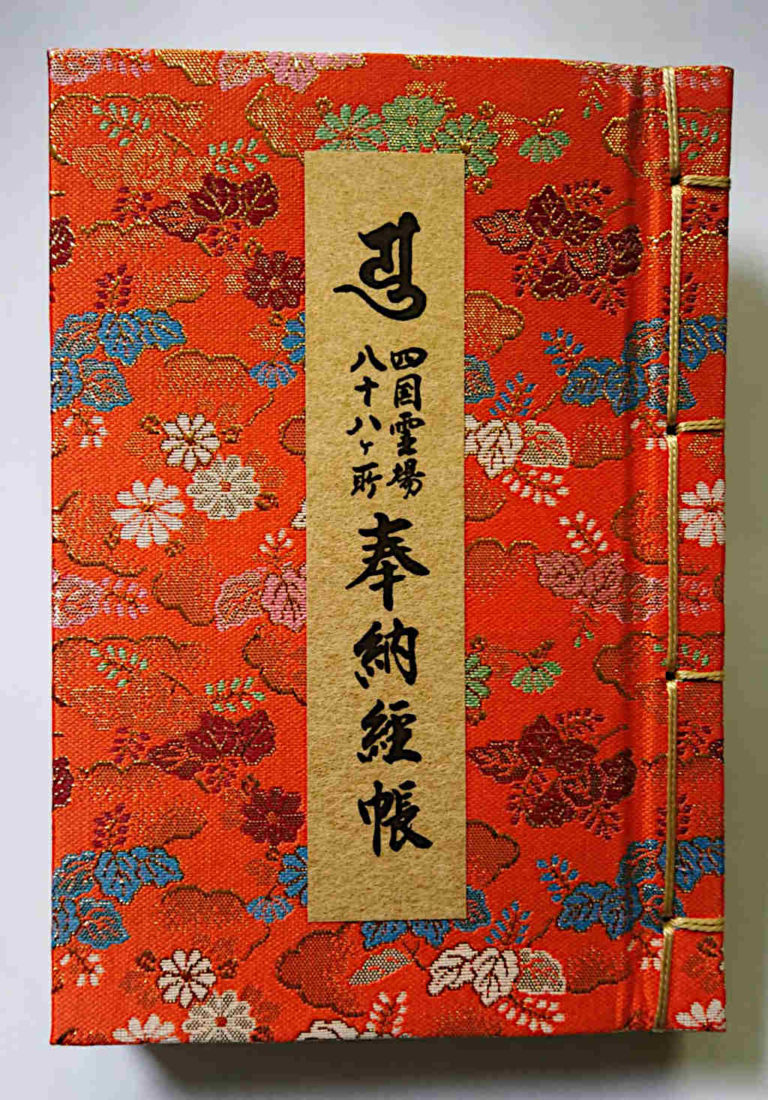 四国霊場
八十八ヶ所
奉納經帳